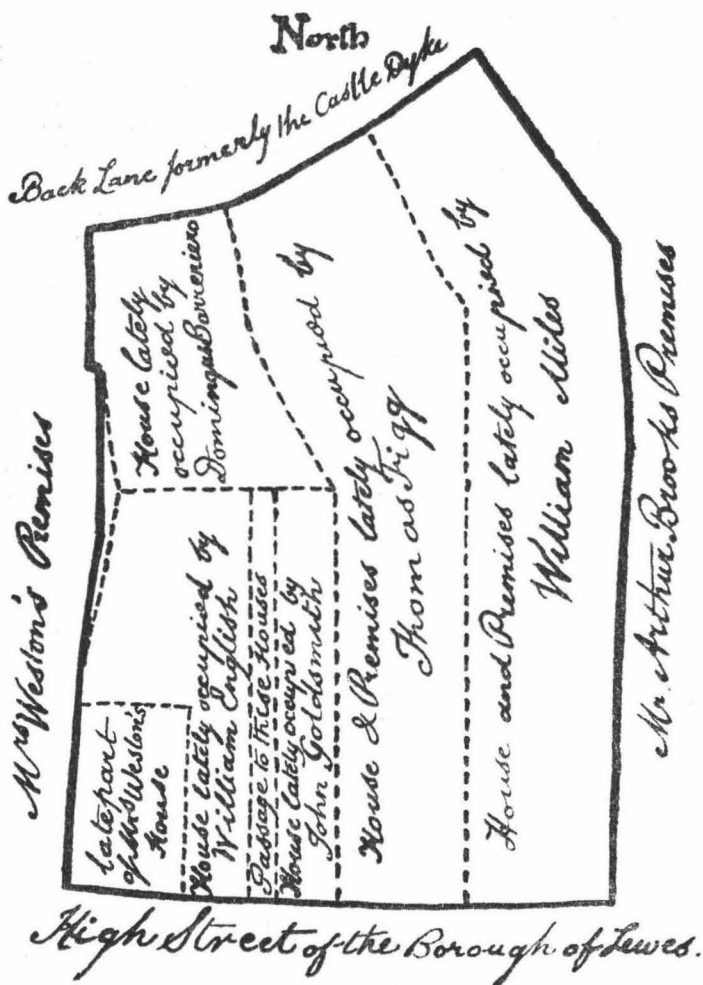 North
Back Lane formerly the Castle Dyke
House lately
occupied by
Domingus Barreniero
Mrs Weston's Premises
late part
of Mrs Weston's
House
House lately occupied by
William English
Passage to these Houses
House lately occupied by
John Goldsmith
House & Premises lately occupied by
Thomas Figg
House and Premises lately occupied by
William Miles
Mr. Arthur Brooks Premises
High Street of the Borough of Lewes.